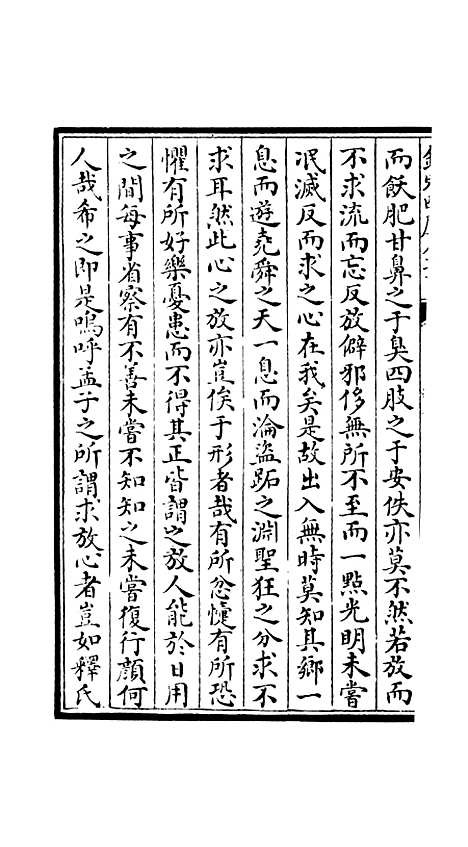 而飫肥甘鼻之于臭四肢之于安佚亦莫不然若放而
不求流而忘反放僻邪侈無所不至而一點光明未嘗
泯滅反而求之心在我矣是故出入無時莫知其鄉一
息而遊堯舜之天一息而淪盜跖之淵聖狂之分求不
求耳然此心之放亦豈俟于形者哉有所忿懥有所恐
懼有所好樂憂患而不得其正皆謂之放人能於日用
之間每事省察有不善未嘗不知知之未嘗復行顔何
人哉希之即是嗚呼孟子之所謂求放心者豈如釋氏